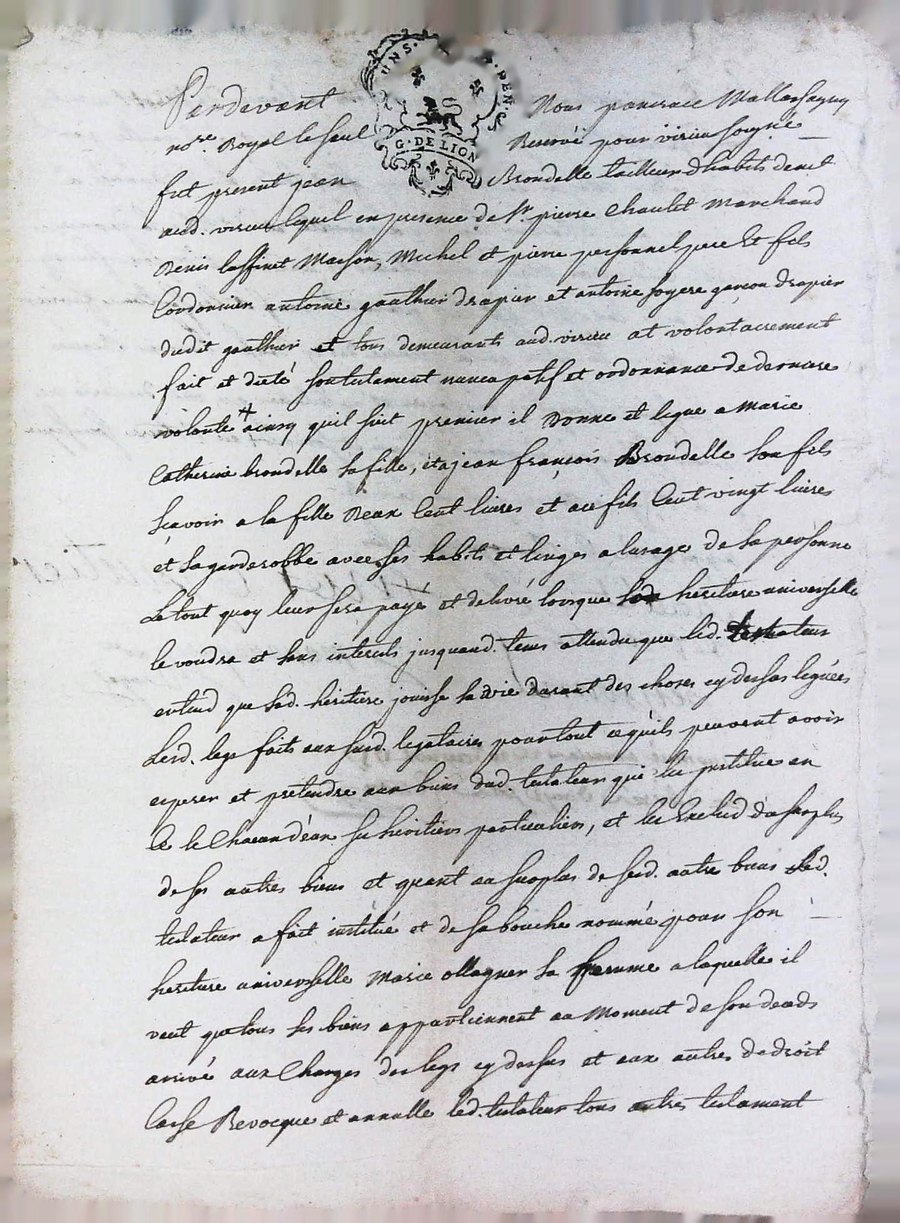 UNS. PEN.
G. DE LION
Pardevant Nous pancrace
no.re Royal le seul Reservé pour virieu soigné
fut present jean Brondelle tailleur dhabits demt
aud. virieu lequel en presence de Sr. pierre Chaulet Marchand
Denis Masson, Michel et pierre personnel pere Et fils
Cordonnier antoine gauthier drapier et antoine foyere garcon drapier
dudit gauthier et tous demeurants aud. virieu at volontairement
fait et dicté son testament nuncupatif et ordonnance de derniere
volonte + ainsy quil suit premier il Donne et legue a Marie
Catherine brondelle sa fille, et a jean françois Brondelle son fils
sçavoir a la fille Deux Cent livres et au fils Cent vingt livres
et sa garderobbe avec ses habits et linges a lusage de sa personne
Le tout quoy leur sera payé et delivré lorsque heritiere universelle
le voudra et sans interets jusquand. tems attendu que led. testateur
entend que lad. heritiere jouisse sa vie durant des choses cy dessus leguées
Lesd. legs faits aux susd. legataires pour tout ce quils peuvent avoir
esperer et pretendre aux biens dud. testateur qui les institue en
Ce le Chacun deux ses heritiers particuliers, et les Exclud du surplus
de ses autres biens et quant au surplus de sesd. autre biens Led.
testateur a fait institué et de sa bouche nommé pour son
heritiere universelle Marie ollagner sa femme a laquelle il
veut que tous ses biens appartiennent au Moment de son deceds
arrivé aux Charges des legs cy dessus et aux autres de droit
Casse Revocque et annulle led. testateur tous autres testament